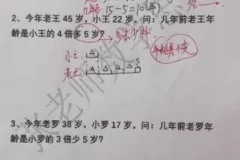 15-5=10(年)
2、今年老王 45 岁，小王 22 岁。问：几年前老王年
龄是小王的 4 倍多 5 岁？
小王：
老王：
5
年龄差不变
3、今年老罗 38 岁，小罗 17 岁。问：几年前老罗年
龄是小罗的 3 倍少 5 岁？